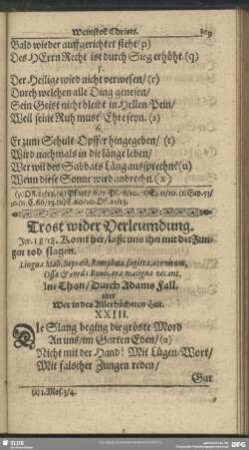 Weinstok Christi. 219
Bald wieder auffgerichtet steht/(p)
Des HErrn Recht ist durch Sieg erhöht.(q)
5.
Der Heilige wird nicht verwesen/(r)
Durch welchen alle Ding genesen/
Sein Geist nicht bleibt in Hellen-Pein/
Weil seine Ruh muß Ehre seyn.(s)
6.
Er zum Schult-Opffer hingegeben/(t)
Wird nachmals in die länge leben/
Wer wil des Sabbats Läng aussprechen(u)
Wenn diese Sonne wird anbrechen.(x)
Trost wider Verleumdung.
Jer. 18/18. Komt her/ lasst uns ihn mit der Zungen
tod slagen.
Lingua Mali,
Ossa & corda Boni,
Im Thon/ Durch Adams Fall.
oder
Wer in des Allerhöchsten Hut.
XXIII.
DIe Slang beging die gröste Mord
An uns/ im Garten Eden/(a)
Nicht mit der Hand! Mit Lügen-Wort/
Mit falscher Zungen reden/
Gar
(a) 1. Mos. 3/4.